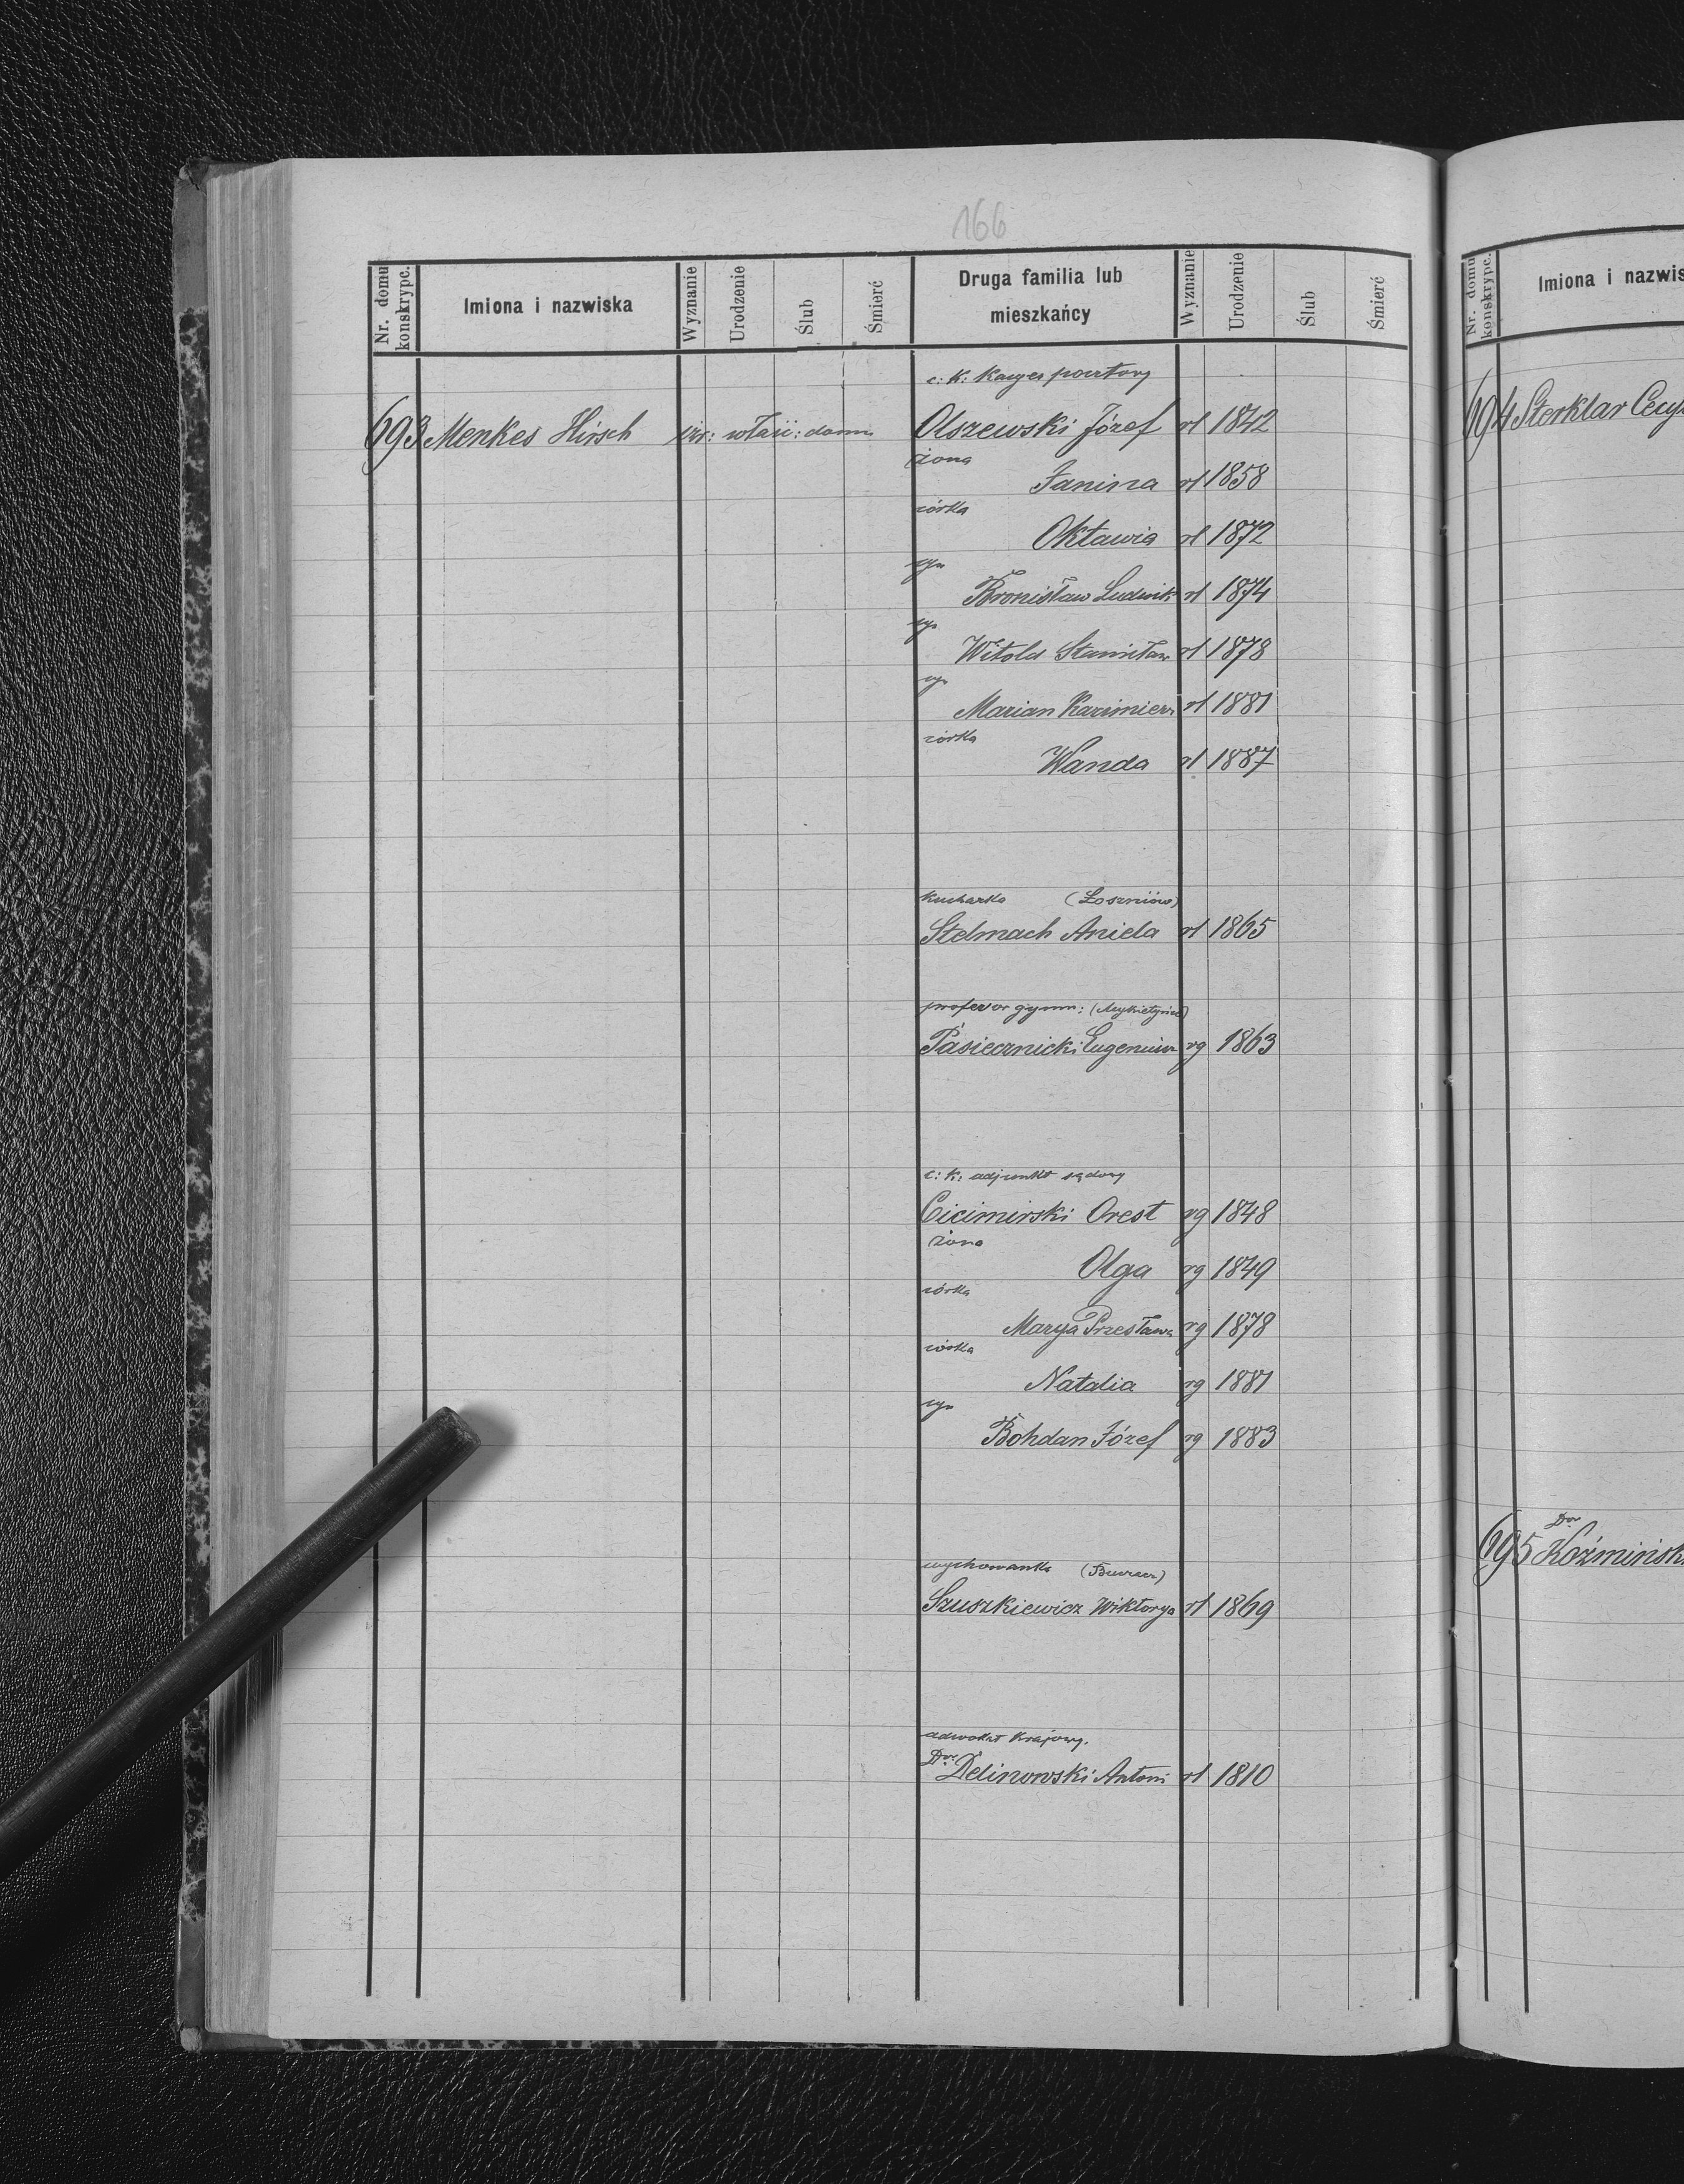 166
Nr. domu konskrypc.
Imiona i nazwiska
Wyznanie
Urodzenie
Ślub
Śmierć
Druga familia lub
mieszkańcy
Wyznanie
Urodzenie
Ślub
Śmierć
c: k: kasyer pocztowy
693 Menkes Hirsch izr: właśc: domu Olszewski Józef rł 1842
żona
Janina rł 1858
córka
Oktawia rł 1872
syn
Bronisław Ludwik rł 1874
syn
Witold Stanisław rł 1878
syn
Marian Kazimierz rł 1881
córka
Wanda rł 1887
kucharka (Łoszniów)
Stelmach Aniela rł 1865
profesor gymn: (Mykietyńce)
Pasiecznicki Eugeniusz rg 1863
c: k: adjunkt sądowy
Cicimirski Orest rg 1848
żona
Olga rg 1849
córka
Marya Przesława rg 1878
córka
Natalia rg 1881
syn
Bohdan Józef rg 1883
wychowanka (Buczacz)
Szuszkiewicz Wiktorya rł 1869
adwokat krajowy.
Dor Delinowski Antoni rł 1810
Nr. domu konskrypc.
Imiona i nazwis
694 Sterklar Cecy
Dor
695 Koźmińsk